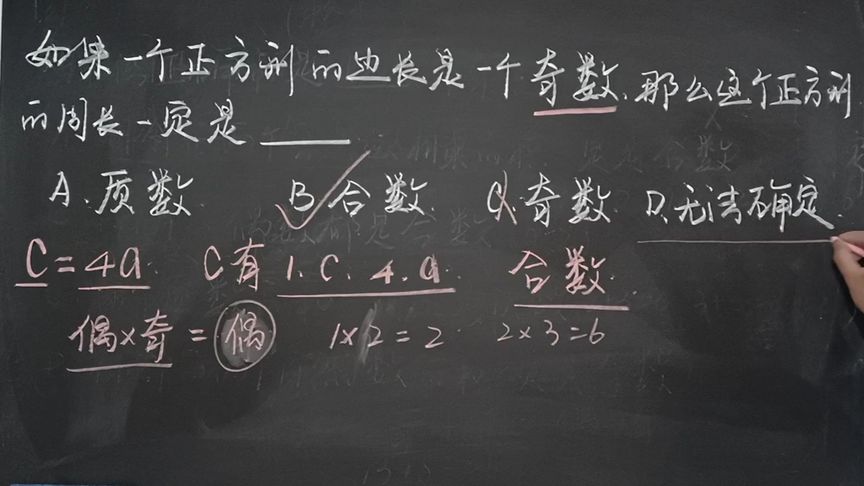 如果一个正方形的边长是一个奇数,那么这个正方形
的周长一定是
A.质数 B合数 C.奇数 D.无法确定.
C=4a. C有1.C.4.a. 合数.
偶×奇=偶 1×2=2 2×3=6